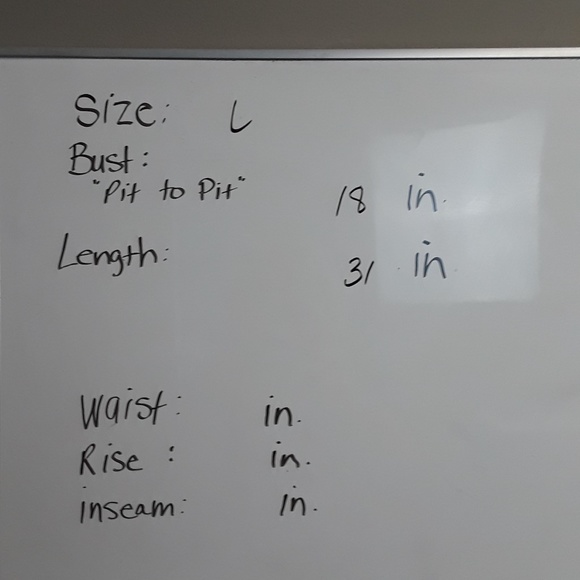 Size: L
Bust:
"Pit to Pit" 18 in.
Length: 31 in
Waist: in.
Rise : in.
inseam: in.